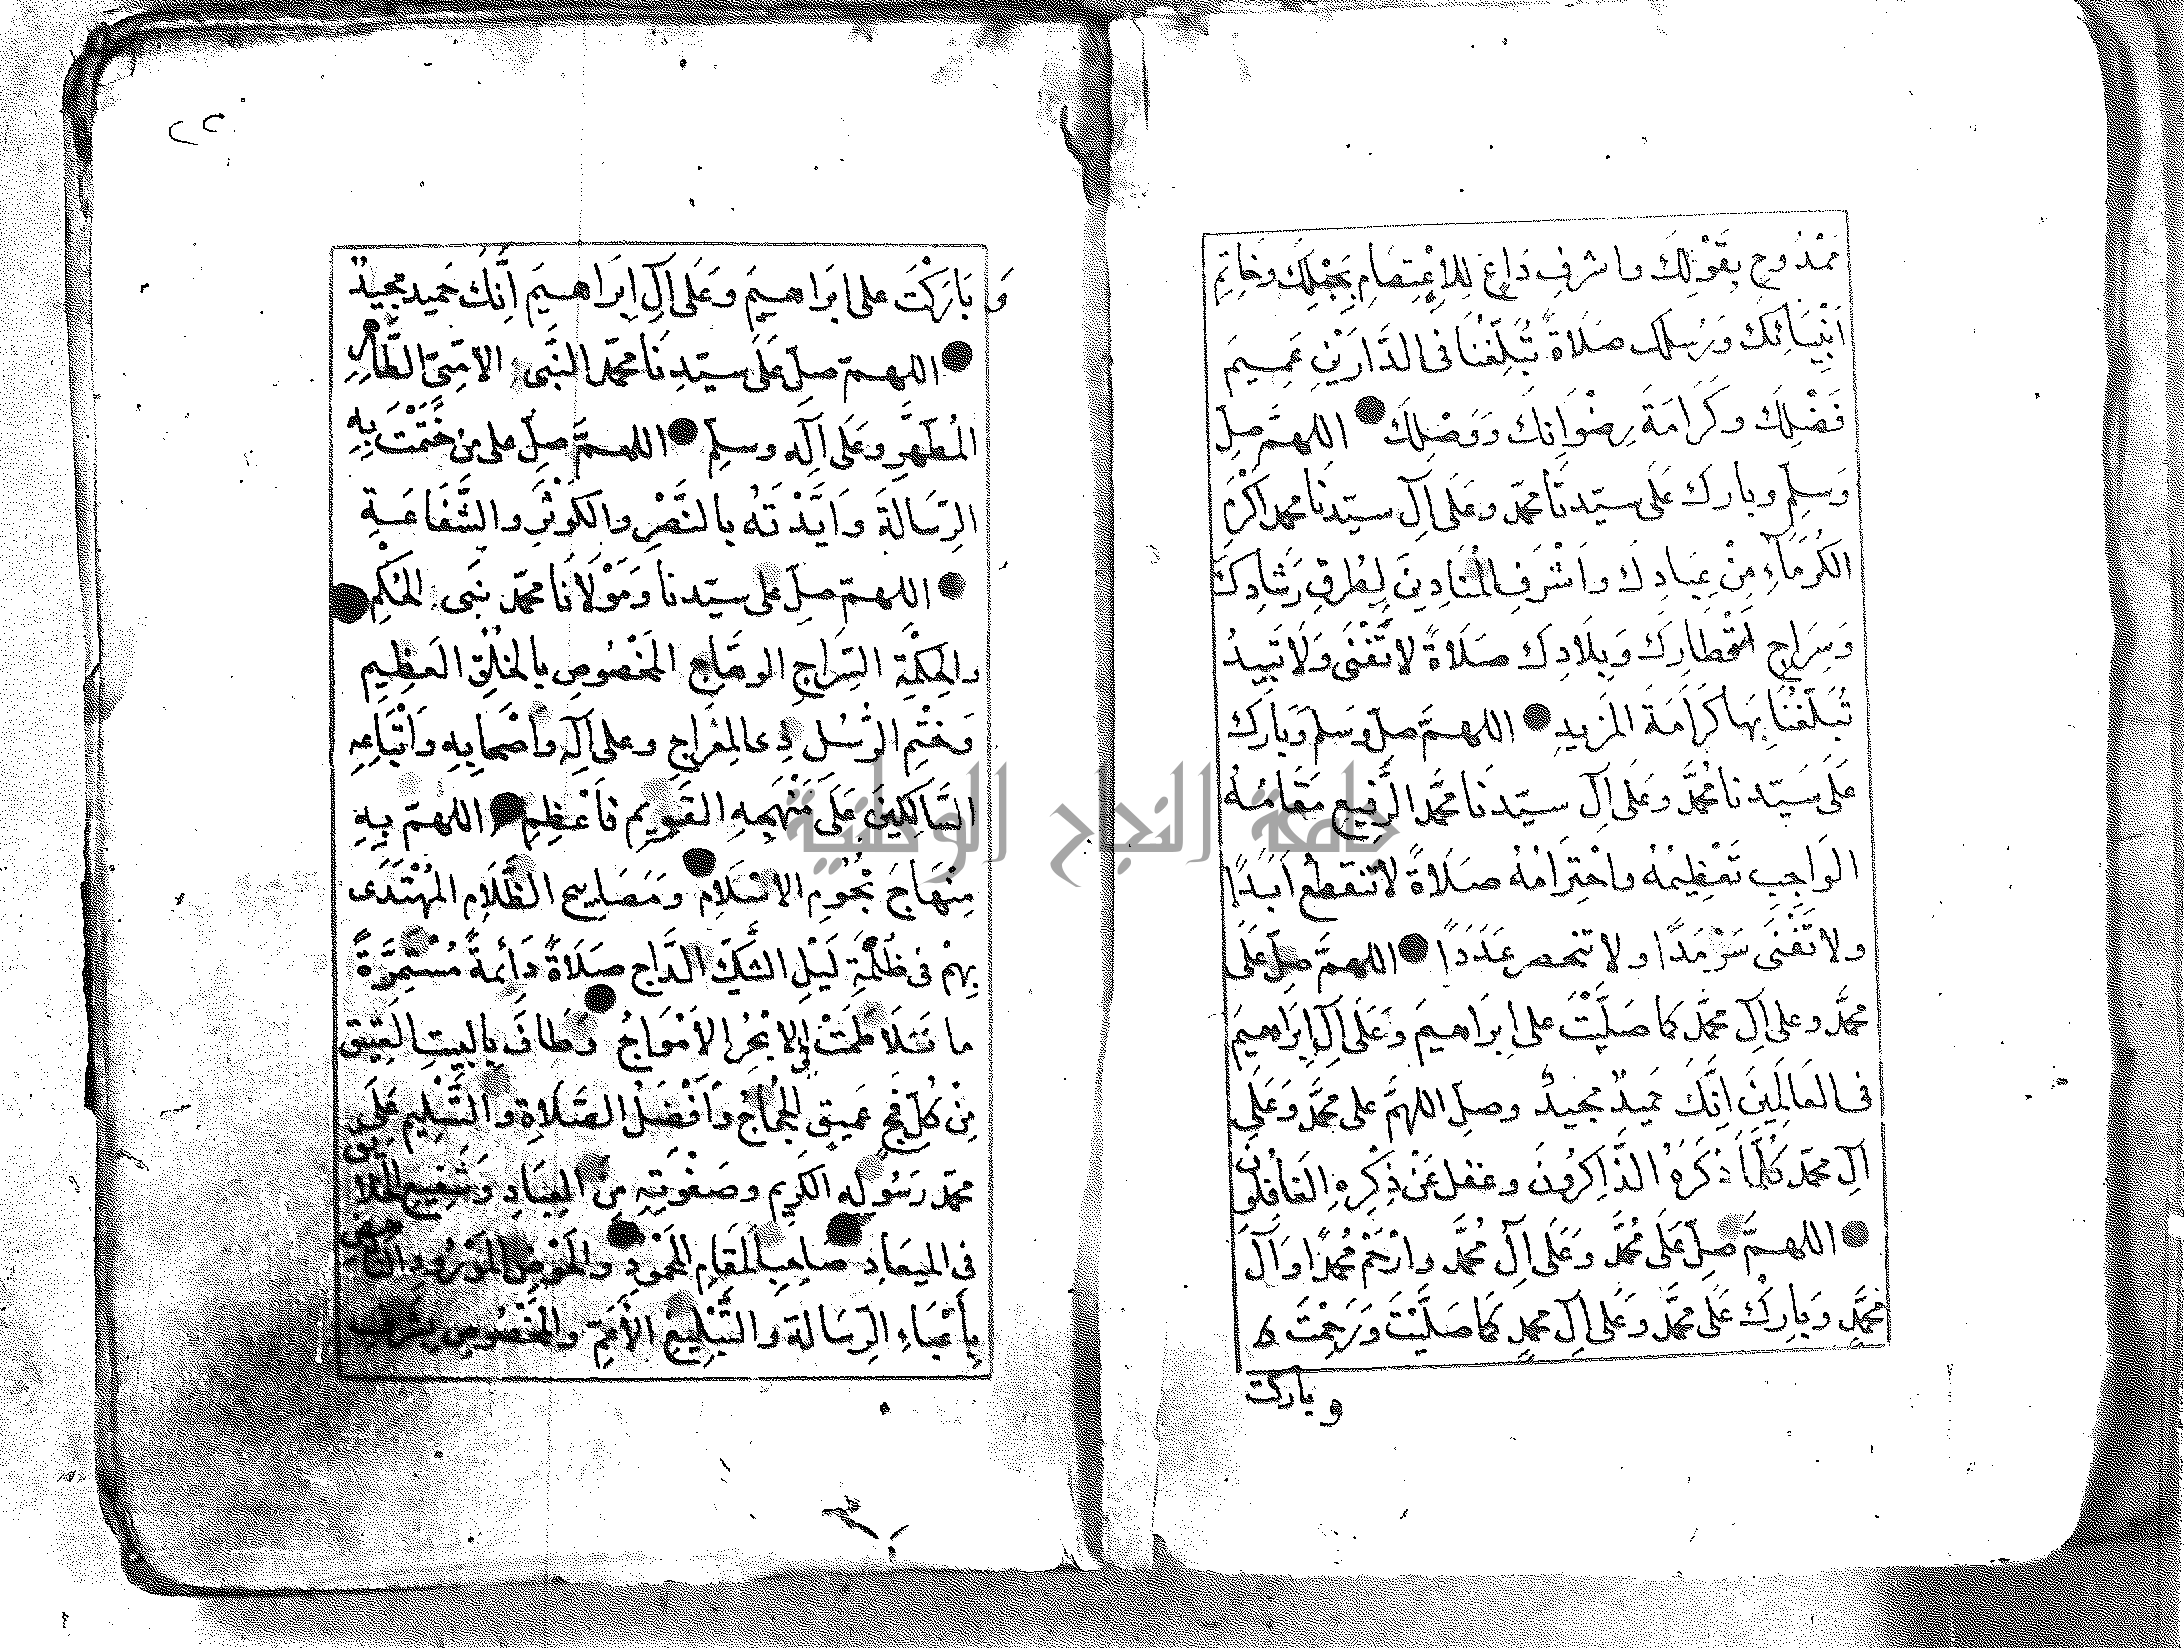 مَمْدُوحٍ بِقَوْلِكَ واشرفِ دَاعٍ لِلاِعْتِصَامِ بِحَبْلِكَ وَخَاتِمِ
اَنْبِيَائِكَ وَرُسلِكَ صَلَاةً تُبَلِّغُنَا فى الدَّارَيْنِ عَمِيمَ
فَضْلِكَ وكَرَامَةَ رِضْوَانِكَ وَوَصْلِكَ اللهمَّ صلِ
وَسَلِمْ وبارك عَلَى سيّدنَا محمّد وعَلَى آلِ سيّدنَا محمد اَكْرَمِ
الكُرَمَآءِ مِنْ عِبادِكَ واَشْرَفِ المُنَادِينَ لِطُرقِ رَشَادِكَ
وَسِرَاجِ اَقْطارِكَ وَبِلَادِكَ صَلَاةً لَا تَفْنَى وَلَا تَبِيدُ
تُبَلِّغُنَا بِهَا كَرَامَةَ المَزِيدِ اللهمَّ صلِ وسَلّمْ وَبَارِكْ
عَلَى سَيّدنا مُحمَّد وعَلَى آلِ سيّدنَا محَمَّد الرَّفِيعِ مَقَامُهُ
الوَاجِبِ تَعْظِيمُهُ واحْتِرَامُهُ صَلَاةً لَا تنقطعُ اَبَدًا
ولا تَفْنَى سَرْمَدًا ولا تنحصر عَدَدًا اللهمَّ صلِّ عَلَى
محمَّد وعلى آلِ محمَّد كما صَلَّيْتَ على اِبرَاهيمَ وَعَلَى آلِ اِبرَاهيمَ
فى العَالَمِينَ اِنَّكَ حَمِيدٌ مجيدٌ وصلِ اللهمَّ على محمَّد وَعَلَى
آلِ محمّد كُلَّمَا ذَكَرَهُ الذَّاكِرُونَ وغفل عَنْ ذِكْرِهِ الغَافلُونَ
اللهمَّ صلِّ عَلَى مُحمَّد وَعَلَى آلِ مُحمَّد وارْحَمْ مُحمدًا وَآلَ
محمَّدٍ وَبَارِكْ عَلَى محمَّد وَعَلَى آلِ محمدٍ كَمَا صَلَّيْتَ وَرَحِمْتَ
وباركت
٢٢
وَبَارَكْتَ على ابرَاهيمَ وعَلَى آلِ اِبرَاهيمَ اِنَّكَ حَميد مجيدٌ
اللهمّ صلِّ عَلَى سيّدِنَا محمّد النَّبى الاُمِّىّ الطَّاهِرِ
المُطَهَّرِ وعَلَى آلِه وسلِم اللهمَّ صلِّ على مَن خَتَمْتَ بِهِ
الرِّسَالةَ وَاَيَّدْتَهُ بالنَّصْرِ والكَوْثَرِ والشَّفَاعَةِ
اللهمّ صلِّ على سيّدنا وَمَوْلَانَا محمّد نَبى الحُكْمِ
والحِكْمَةِ السِّرَاجِ الوهَّاجِ المَخْصُوصِ بالخُلُقِ العَظِيمِ
وَخَتْمِ الرُّسُلِ ذِى المِعْرَاجِ وعلى آلِه واَصْحَابِه واَتْبَاعِهِ
السَّالِكِينَ عَلَى مَنْهَجِهِ القَوِيمِ فَاَعْظِم اللهمّ بِهِ
مِنْهَاجَ نُجُومِ الاسْلَامِ ومَصَابيحِ الظَّلَامِ المُهْتَدَى
بِهِمْ فى ظُلْمَةِ لَيْلِ الشَّكِّ الدَّاجِ صَلَاةً دَائمةً مُسْتَمِرَّةً
ما تَلَاطَمَتْ فى الاَبْحُرِ الاَمْوَاجُ وَطَافَ بِالبيتِ العَتِيقِ
مِنْ كُلِّ فَجٍّ عَمِيقٍ الحُجَّاجُ وَاَفْضَلُ الصَّلَاةِ والتَّسْلِيمِ عَلَى
محمّد رَسُولِه الكَرِيمِ وصَفْوَتِهِ مِنَ العِبَادِ وَشَفِيعِ الخَلَائِقِ
فى المِيعَادِ صَاحِبِ المَقَامِ المَحْمُودِ والحَوْضِ المَوْرُودِ النَّاهِضِ
بِاَعْبَاءِ الرِّسَالَةِ والتَّبْلِيغِ الاَعَمِّ والمَخْصُوصِ بشرف
جامعة النجاح الوطنية